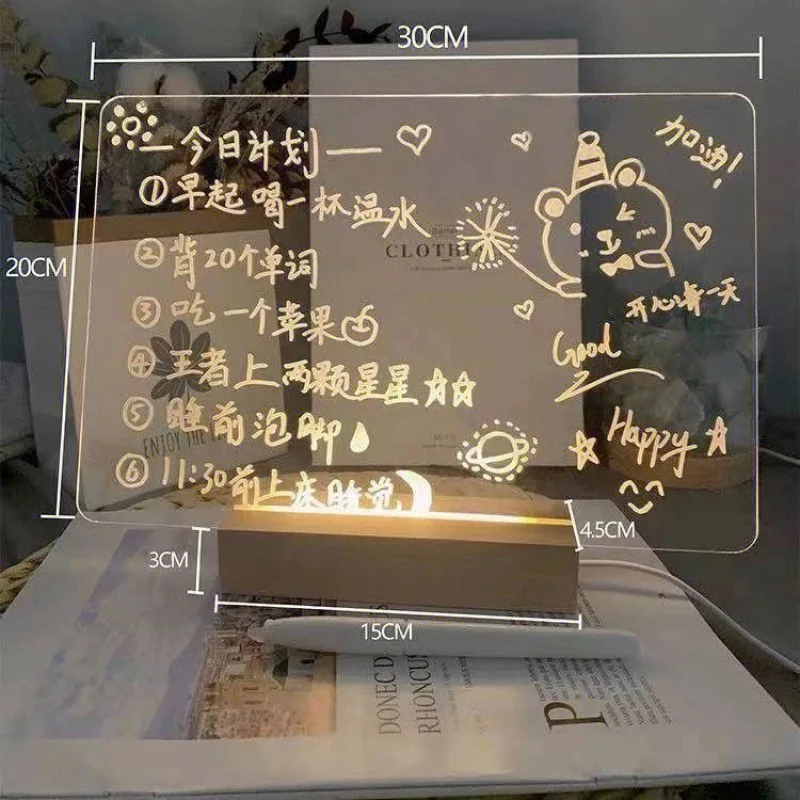 30CM
20CM
一今日计划一
①早起喝一杯温水
②背20个单词
③吃一个苹果
④王者上两颗星星
⑤睡前泡脚
⑥11:30前上床睡觉
加油!
开心每一天
Good
Happy
CLOTHI
ENJOY THE LI
4.5CM
3CM
15CM
DONEC D
RHONCUS
P